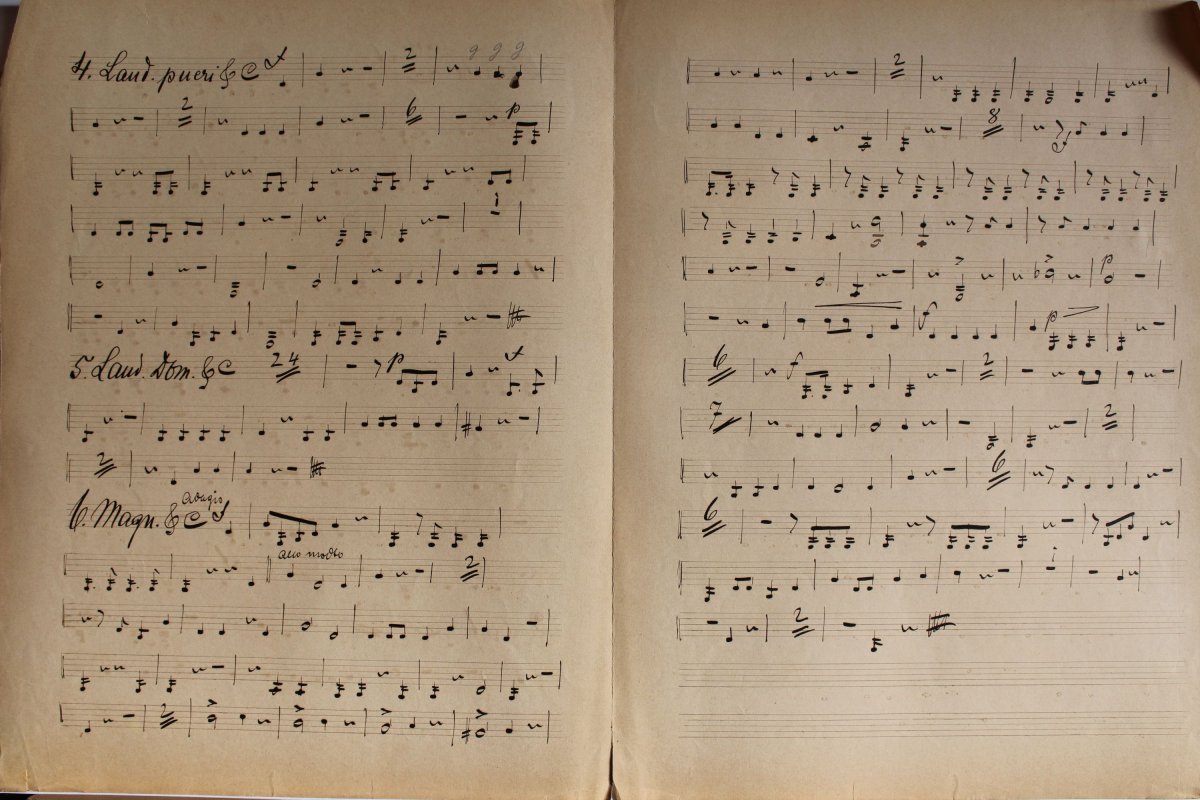 4. Laud. pueri C f
2
g g g
2
6
p
1
5. Laud. Dom. C 24
p
f
2
6. Magn. C f
Adagio
All° modto
2
2
2
8
f
p
f
p
6
f
2
7
2
6
6
i
2